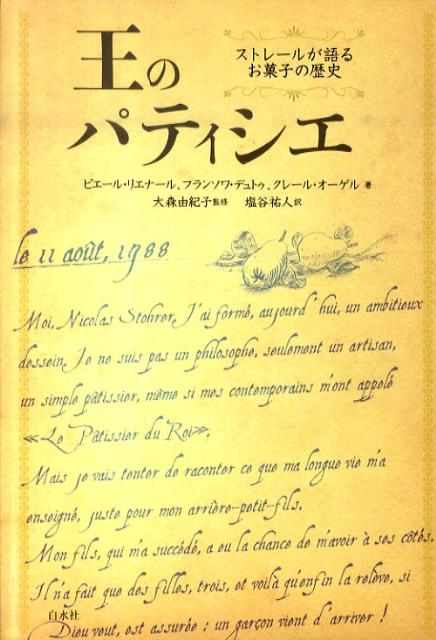 王の
パティシエ
ストレールが語る
お菓子の歴史
ピエール・リエナール、フランソワ・デュトゥ、クレール・オーゲル 著
大森由紀子 監修 塩谷祐人 訳
le 11 août, 1788
Moi, Nicolas Stohrer, J'ai formé, aujourd'hui, un ambitieux
dessein. Je ne suis pas un philosophe, seulement un artisan,
un simple pâtissier, même si mes contemporains m'ont appelé
«Le Pâtissier du Roi».
Mais je vais tenter de raconter ce que ma longue vie m'a
enseigné, juste pour mon arrière-petit-fils.
Mon fils, qui m'a succédé, a eu la chance de m'avoir à ses côtés.
Il n'a fait que des filles, trois, et voilà qu'enfin la relève, si
白水社
Dieu veut, est assurée : un garçon vient d'arriver !